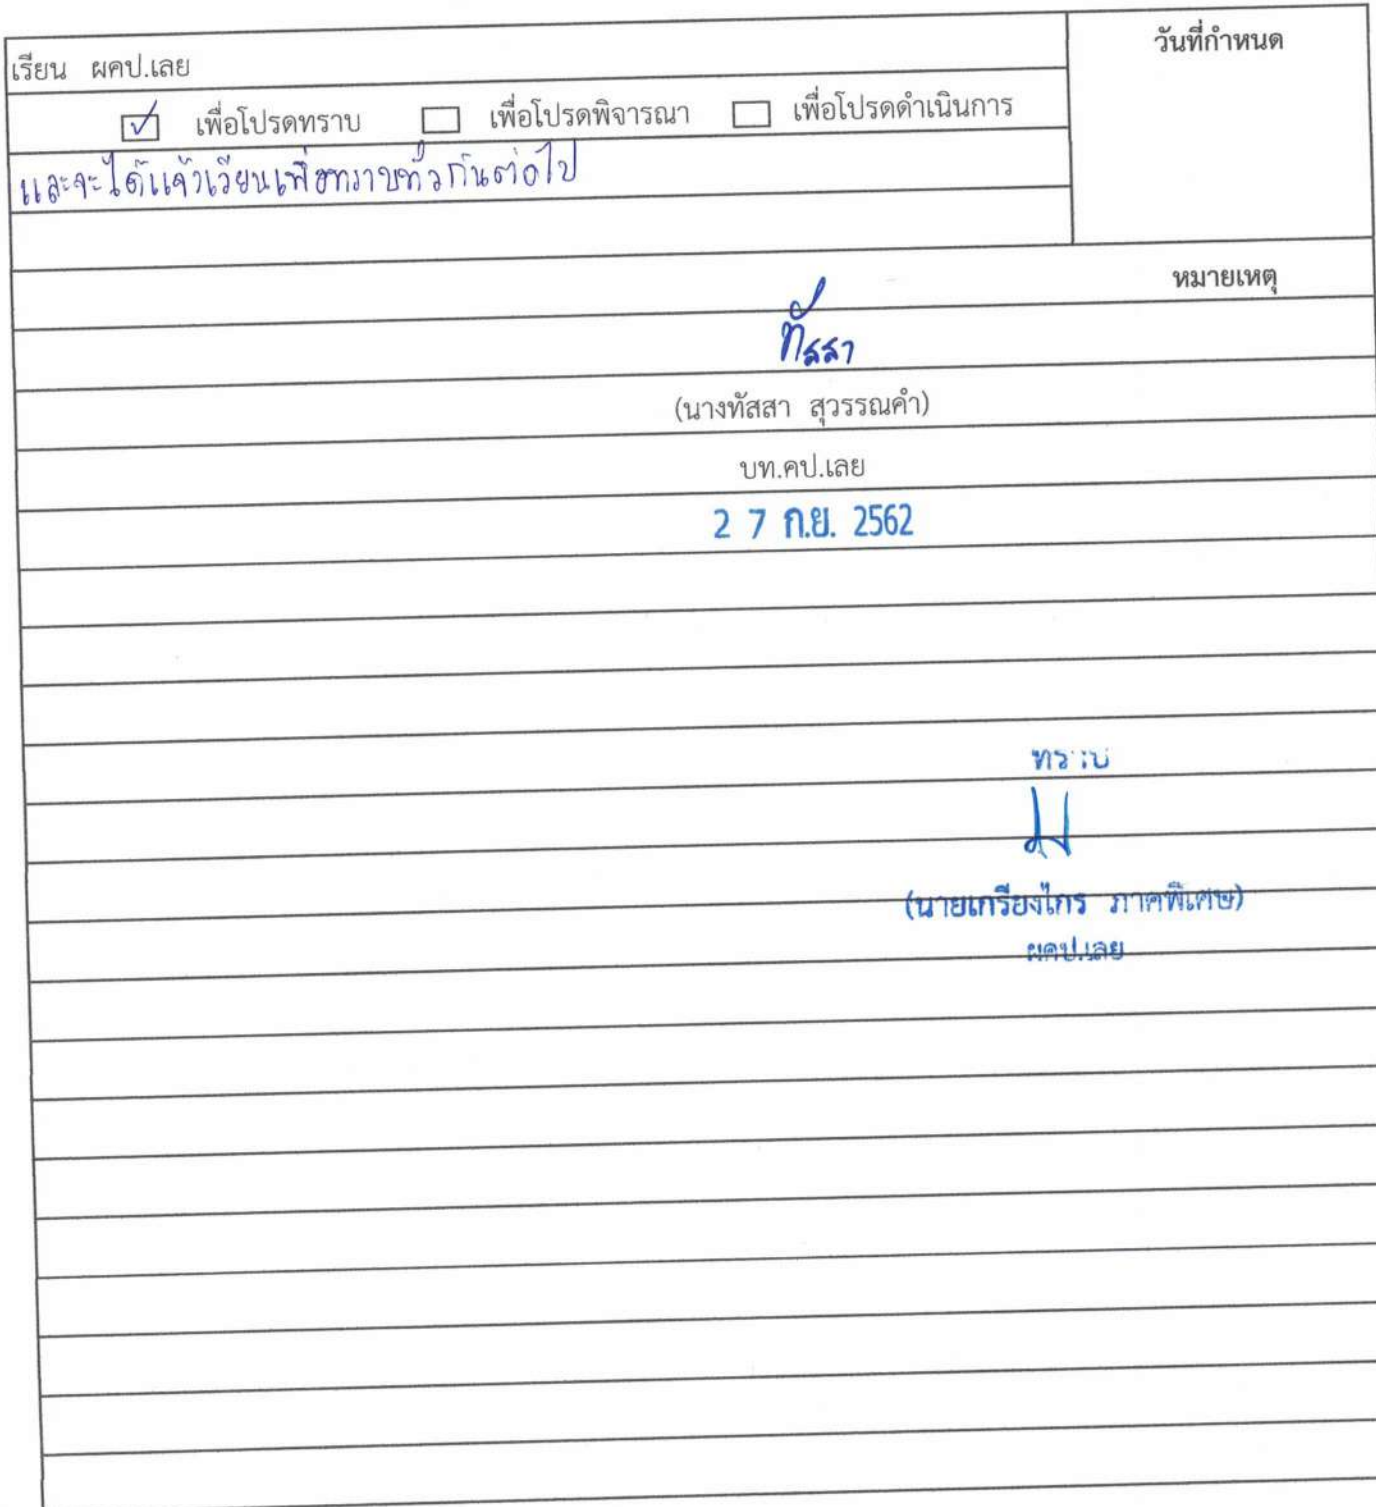 วันที่กำหนด
เรียน ผคป.เลย
☑ เพื่อโปรดทราบ ☐ เพื่อโปรดพิจารณา ☐ เพื่อโปรดดำเนินการ
และจะได้แจ้งเวียนเพื่อทราบทั่วกันต่อไป
หมายเหตุ
ทัสสา
(นางทัสสา สุวรรณคำ)
บท.คป.เลย
2 7 ก.ย. 2562
ทราบ
(นายเกรียงไกร ภาคพิเศษ)
ผคป.เลย